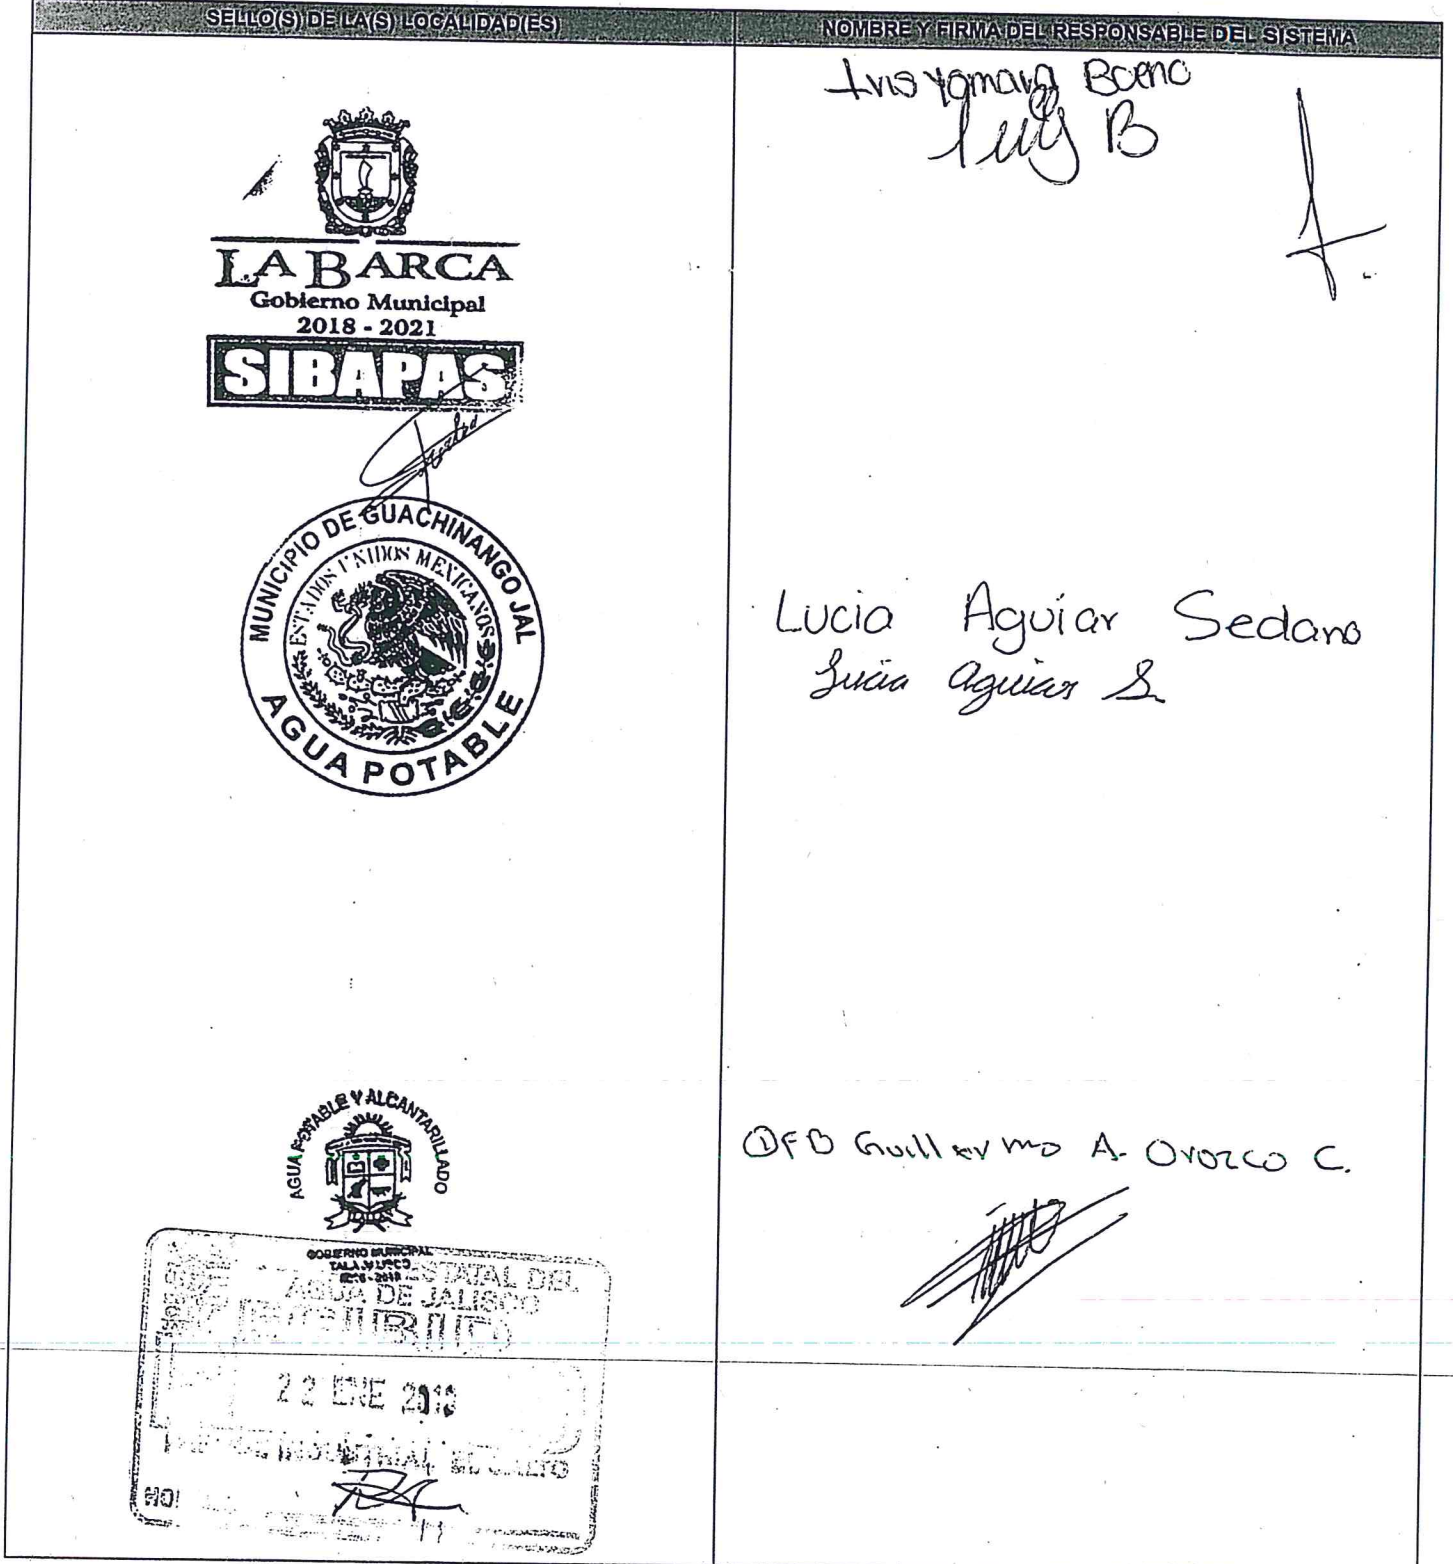 SELLO(S) DE LA(S) LOCALIDAD(ES)
NOMBRE Y FIRMA DEL RESPONSABLE DEL SISTEMA
LA BARCA
Gobierno Municipal
2018 - 2021
SIBAPAS
Yamara Bueno
B
MUNICIPIO DE GUACHINANGO JAL
ESTADOS UNIDOS MEXICANOS
AGUA POTABLE
Lucia Aguiar Sedano
Lucia Aguiar S.
AGUA POTABLE Y ALCANTARILLADO
GOBIERNO MUNICIPAL
TALA, JALISCO
QFB Guillermo A. Orozco C.
ESTATAL DEL
AGUA DE JALISCO
RECIBIDO
22 ENE 2019
INDUSTRIAL EL SALTO